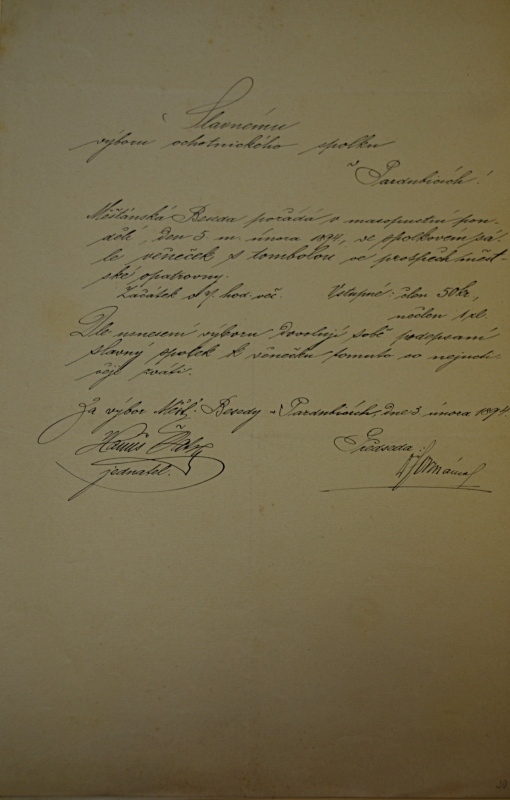 Slavnému
výboru ochotnického spolku
v Pardubicích!
Měšťanská Beseda pořádá v masopustní pon-
dělí, den 5. m. února 1894, ve spolkovém sá-
le věneček s tombolou ve prospěch měst-
ské opatrovny.
Začátek v 7 hod. več. Vstupné: člen 50 kr,
nečlen 1 zl.
Dle usnesení výboru dovolují sobě podepsaní
slavný spolek k věnečku tomuto co nejucti-
věji zváti.
Za výbor Měšť. Besedy v Pardubicích, dne 3. února 1894.
Hanuš
Předseda:
jednatel.